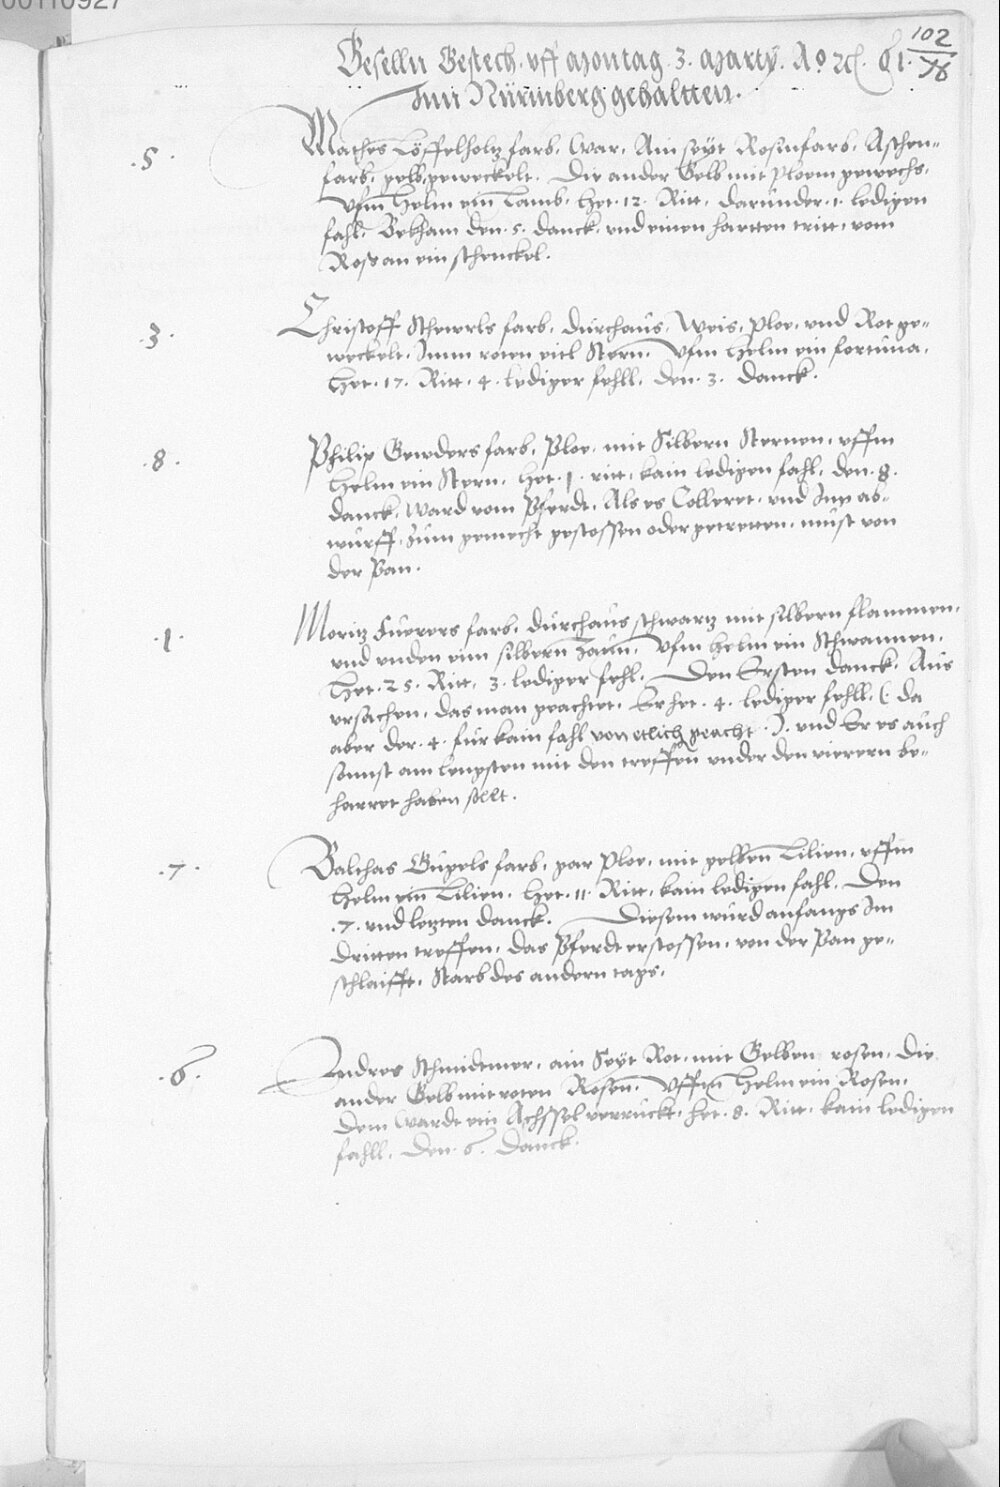 00110927
102
78
Geselln Gestech. uff Montag. 3. Marty. Ao. 2c. 61.
Inn Nürmberg gehaltten.
.5. Mathes Löffelholtz farb. War. Ain seyt Rosinfarb. Aschen-
farb. gelb geweckelt. Die ander Gelb mit ploem gewechs.
Vfm Helm ein Lamb. Het. 12. Ritt. darunder. 1. ledigen
fahl. Bekham den. 5. danck. vnd einen hartten tritt. vom
Ross an ein schenckel.
.3. Christoff Schewrls farb. durchaus. Weis, ploe. vnd Rot ge-
weckelt. Inn roten vil Stern. Vfm Helm ein fortuna.
Het. 17. Ritt. 4. lediger fehll. den. 3. danck.
.8. Philip Gewders farb. Ploe. mit Silbern Sternen. vffm
Helm ein Stern. Het. 1. ritt. kain ledigen fahl. den. 8.
danck. Ward vom Pferdt. Als es Colleret. vnd Inn ab-
wurff. zum gemecht gestossen oder getretten. must von
der Pan.
.1. Moritz Fürers farb. durchaus schwartz mit silbern flammen.
vnd vnden ein silbern Zaun. Vfm Helm ein Schwannen.
Het. 25. Ritt. 3. lediger fehl. Den Ersten danck. Aus
vrsachen. das man geachtet. Er het. 4. lediger fehll. (: da
aber der. 4. für kain fahl von etlich geacht. :). vnd Er es auch
sonnst am lengsten mit den treffen vnder den vierern be-
harret haben sollt.
.7. Balthas Gugels farb. gar ploe. mit gelben Lilien. vffm
Helm ein Lilien. Het. 11. Ritt. kain ledigen fahl. Den
.7. vnd letzten danck. Diesem wurd anfangs Im
dritten treffen. das Pferdt erstossen. von der Pan ge-
schlaifft. Starb des andern tags.
.6. Andres Schmidtmer. ain Seyt Rot. mit Gelben rosen. die
ander Gelb mit roten Rosen. Vffm Helm ein Rosen.
Dem Wardt ein Achssel verruckt. het. 8. Ritt. kain ledigen
fahll. Den. 6. Danck.